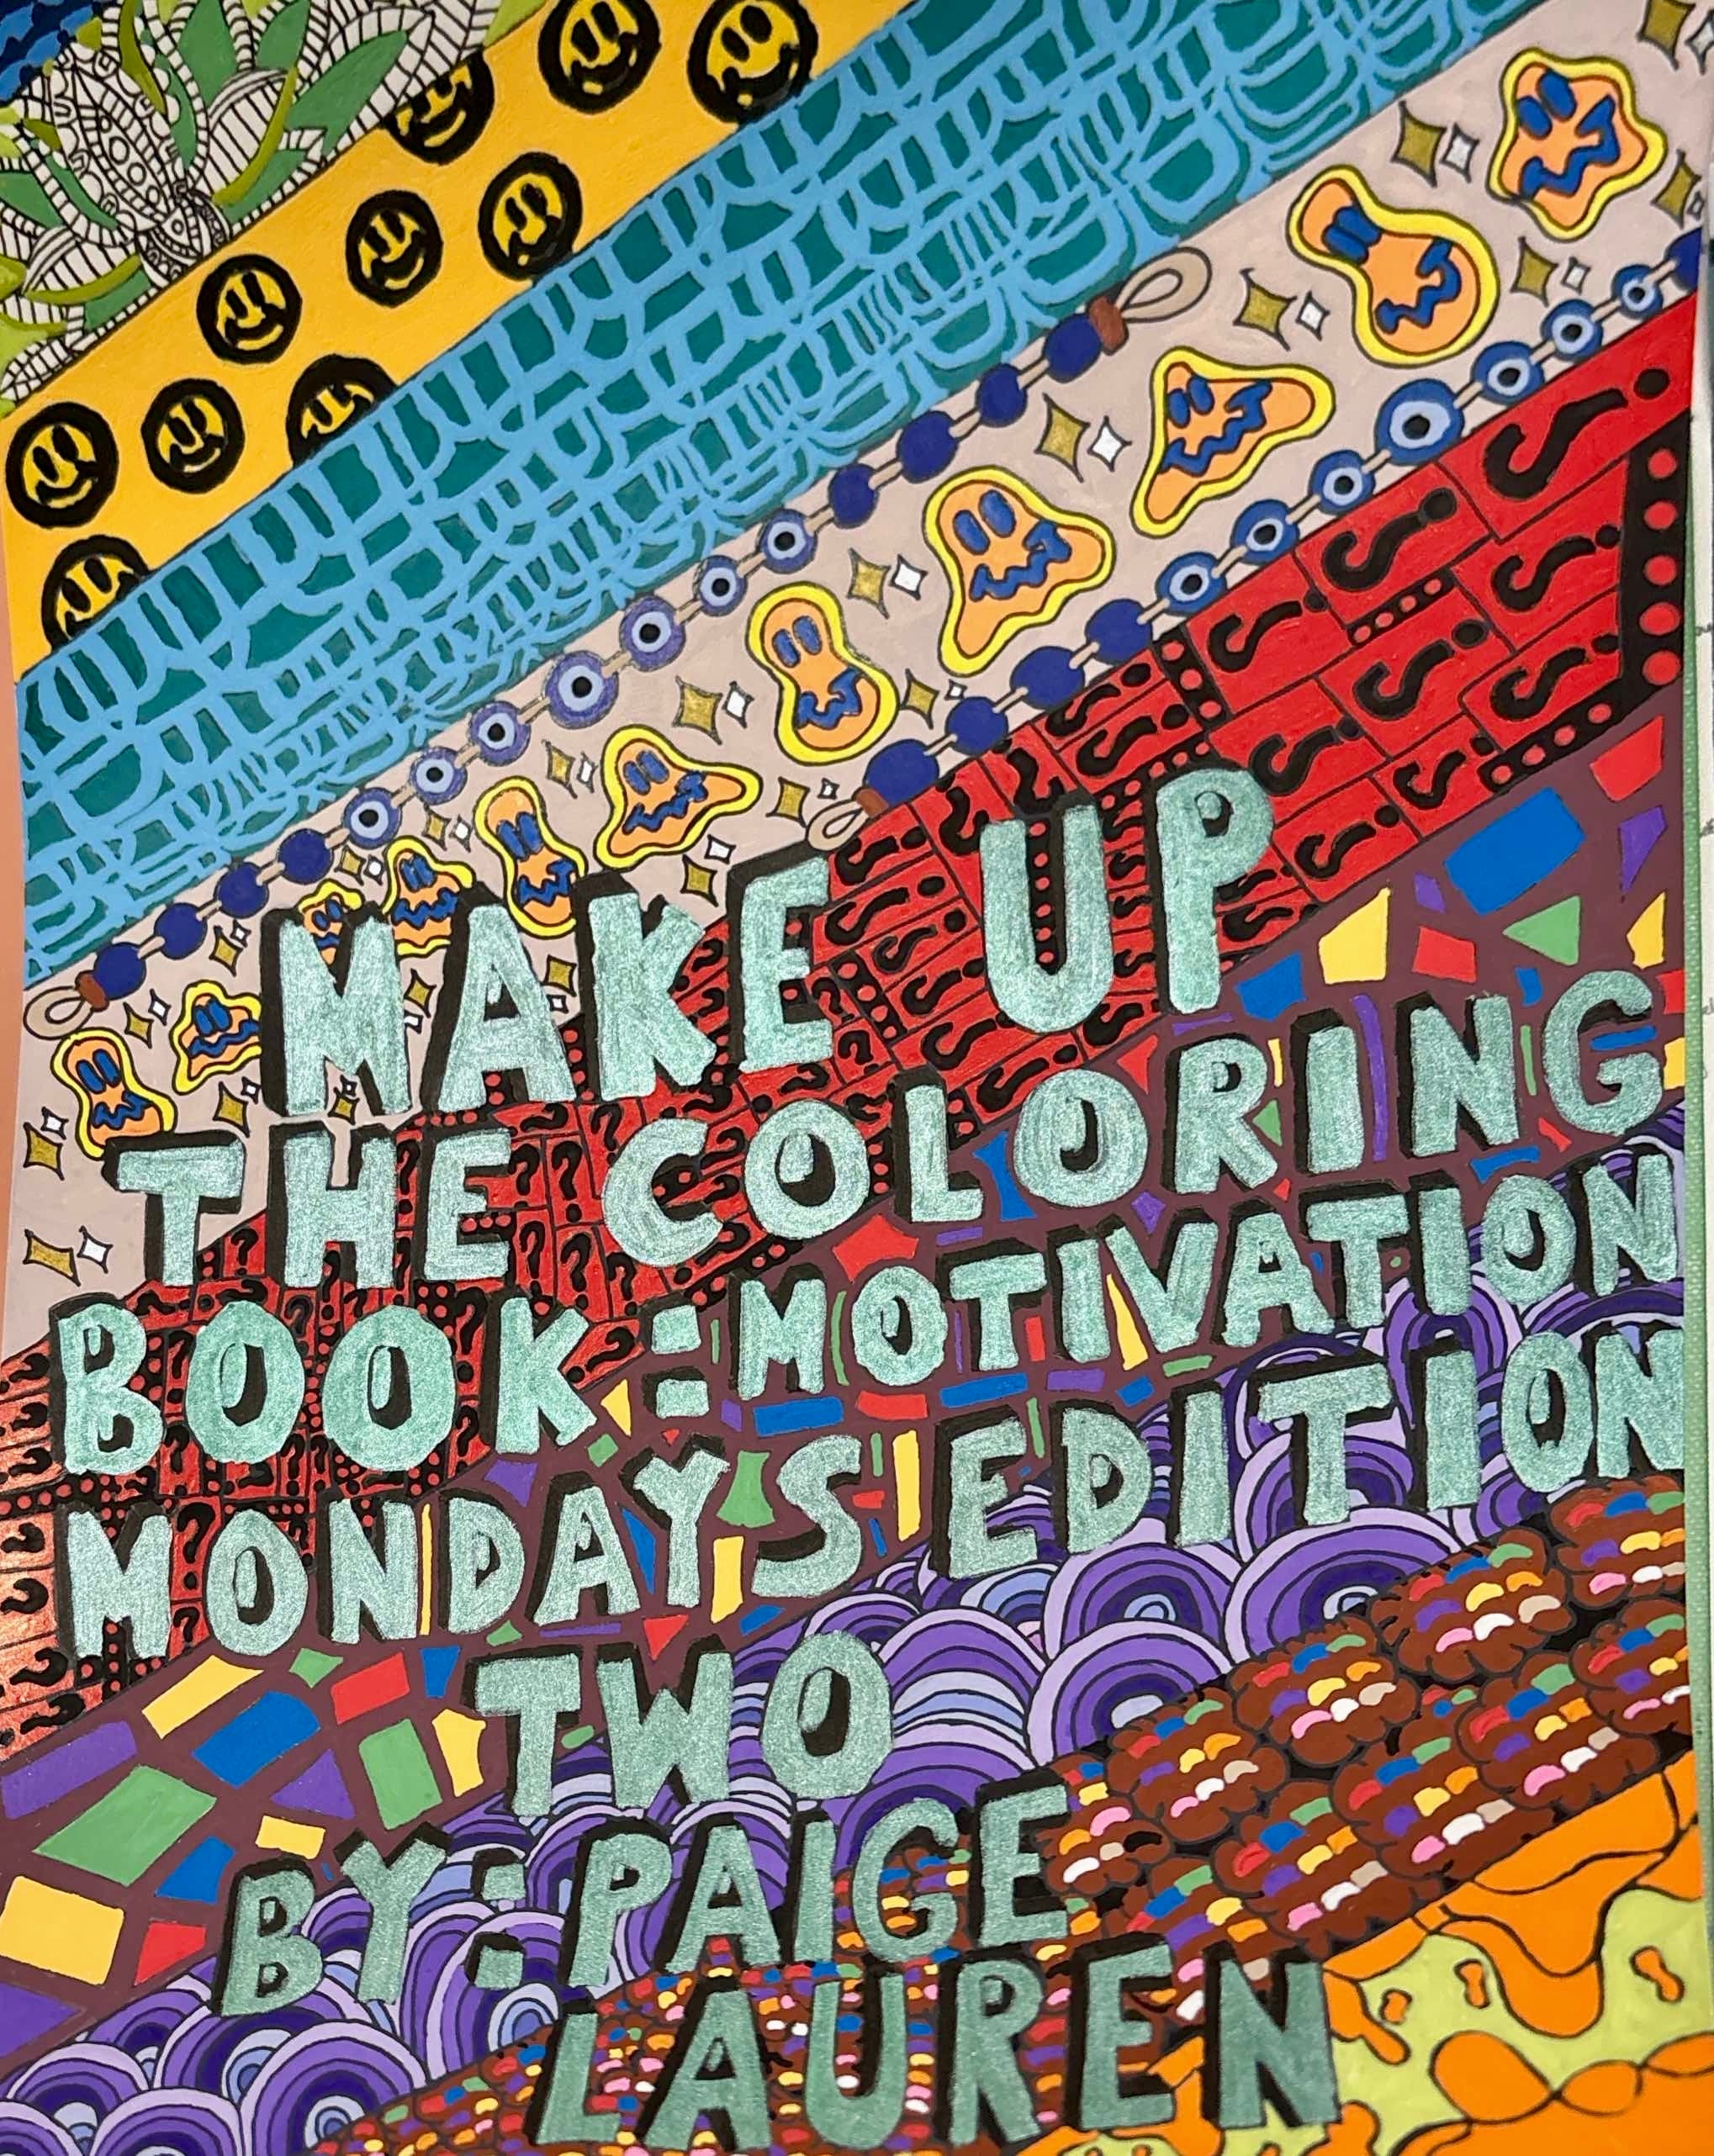 MAKE UP
THE COLORING
BOOK: MOTIVATION
MONDAYS EDITION
TWO
BY: PAIGE
LAUREN